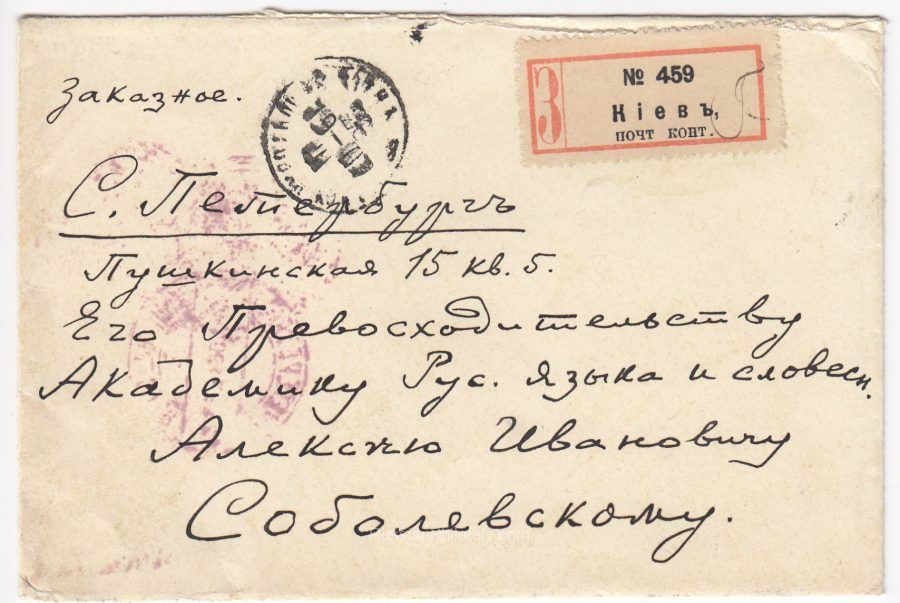 Заказное.
З
№ 459
Кіевъ,
ПОЧТ КОНТ.
С. Петербургъ
Пушкинская 15 кв. 5.
Его Превосходительству
Академику Рус. языка и словесн.
Алексѣю Ивановичу
Соболевскому.